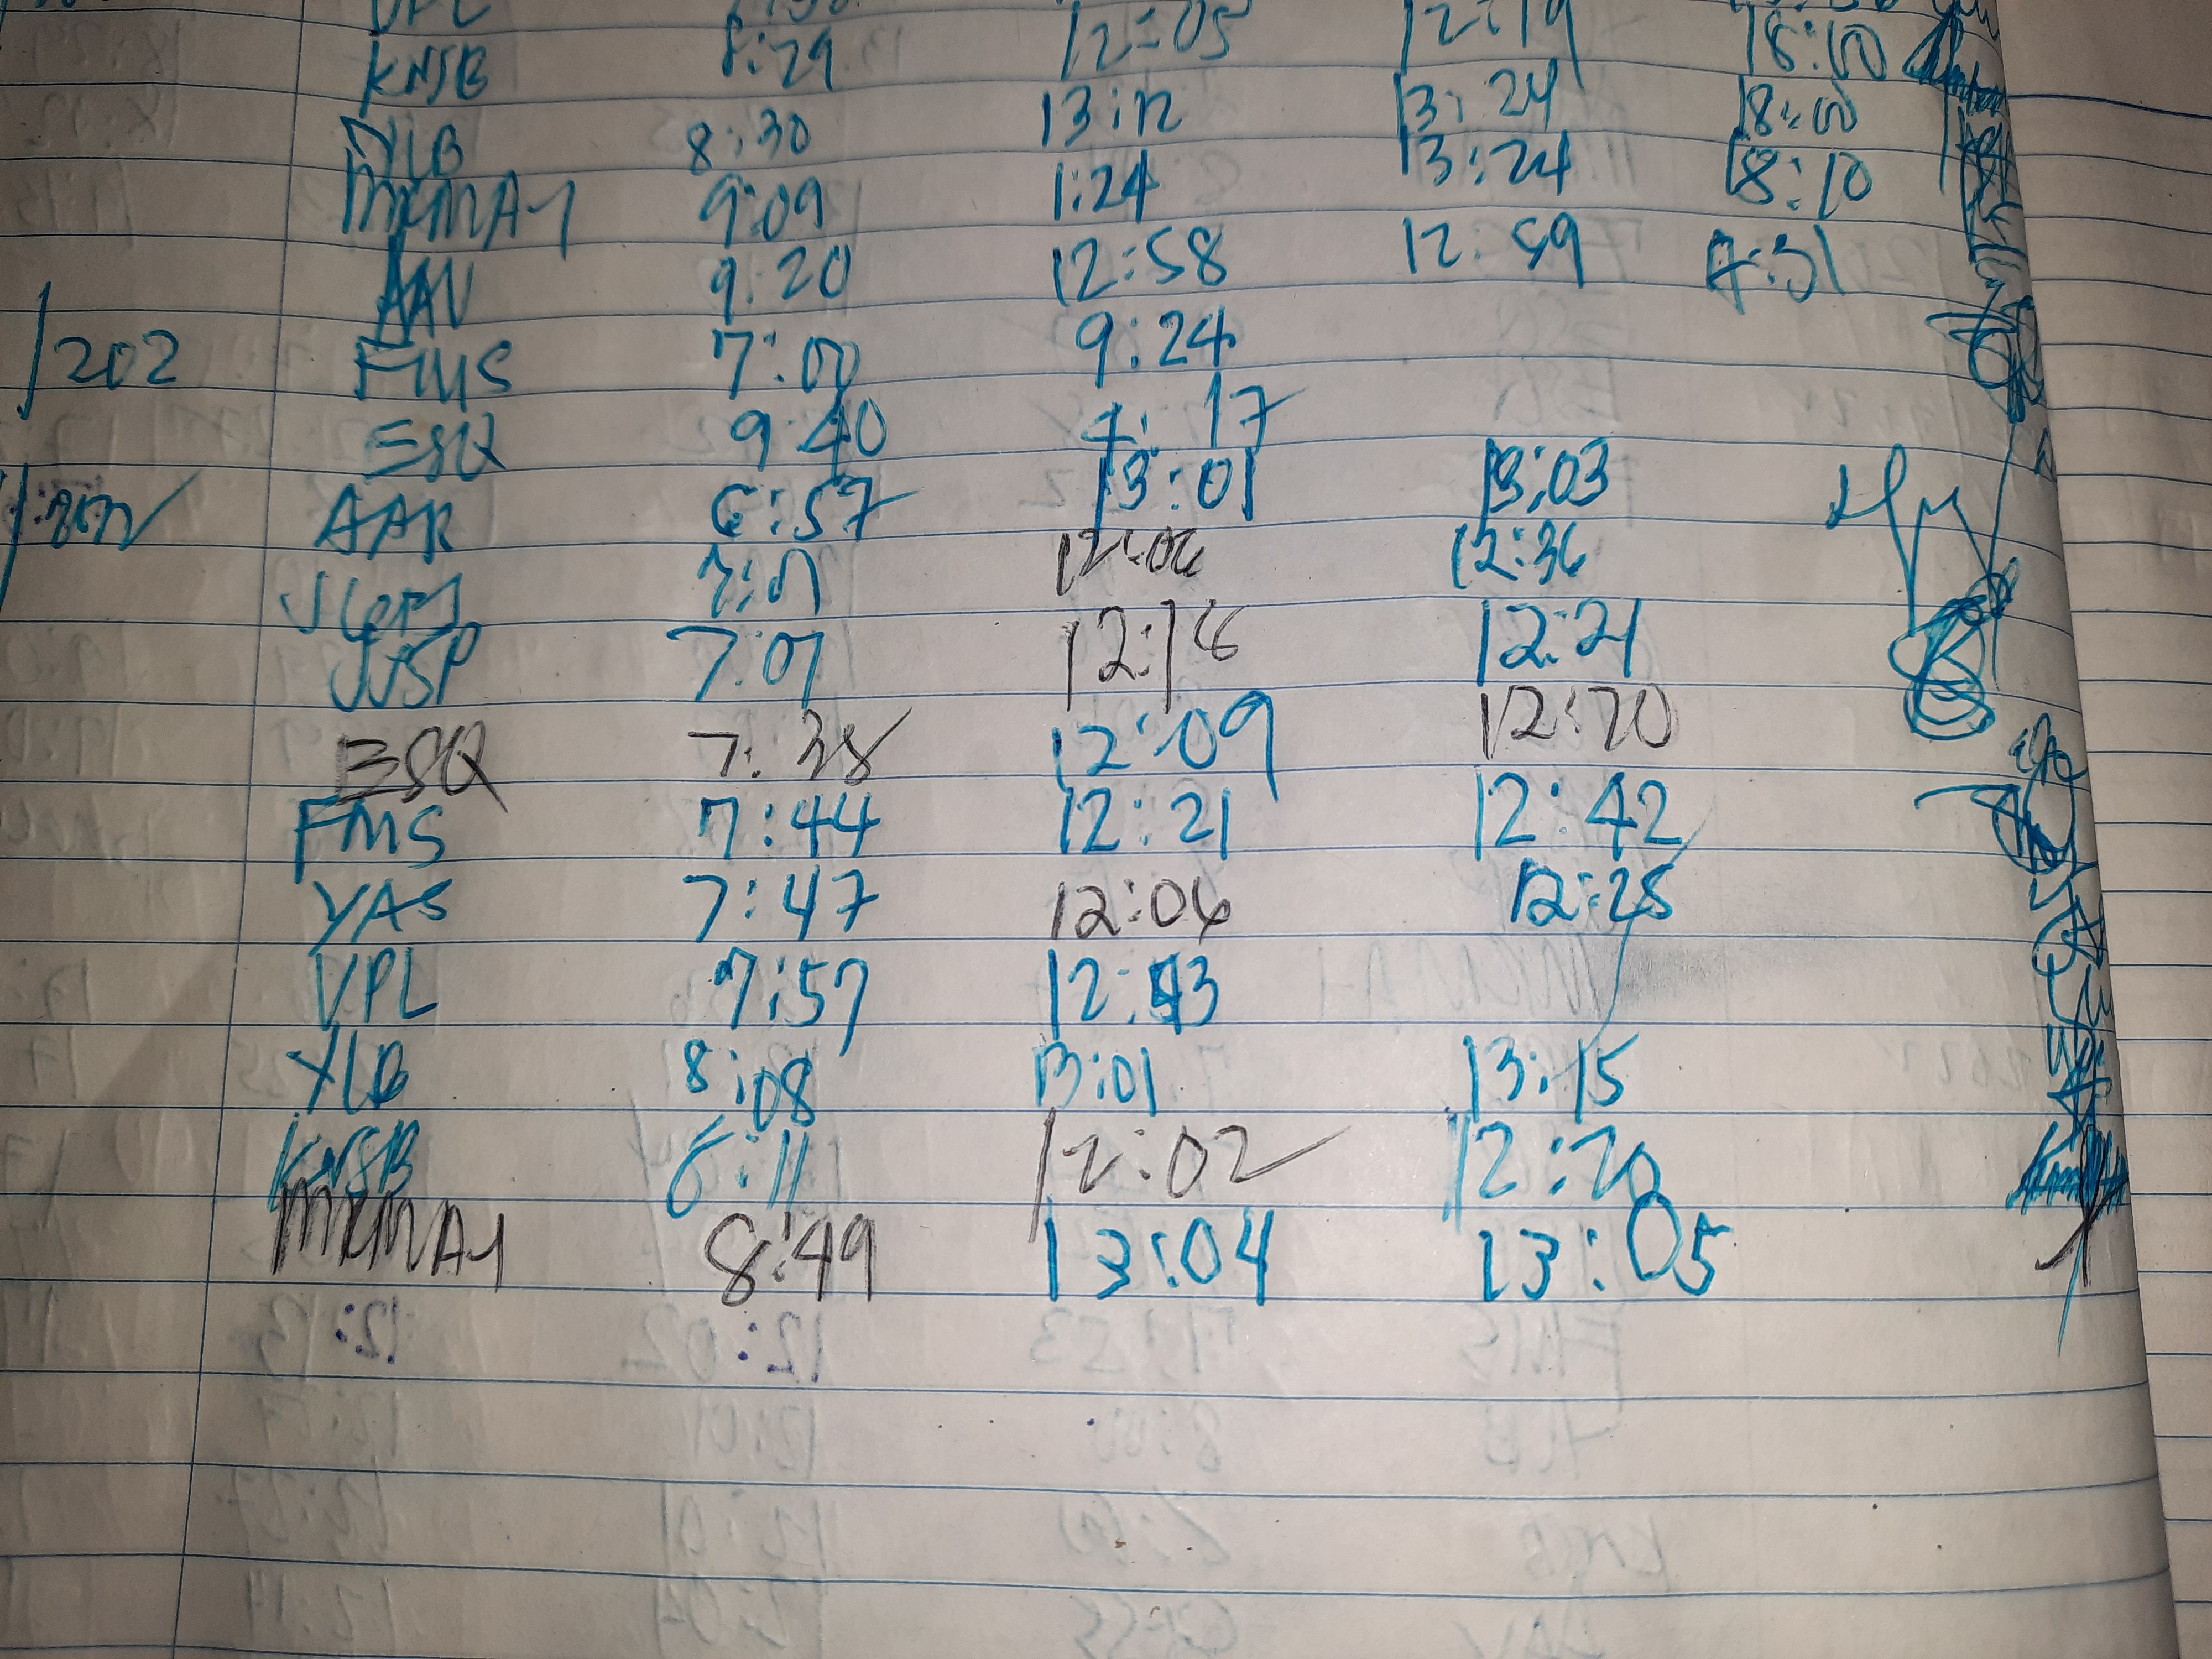 VPL
KNSB 8:29 12:05 12:19 18:00
YLB 8:30 13:12 13:24 18:00
MKMA-1 9:09 1:24 13:24 18:10
AAV 9:20 12:58 12:59
/202 FMS 7:00 9:24
ESQ 9:40 4:17
AAR 6:57 13:01 13:03
12:06 12:36
JJSP 7:07 12:18 12:21
ESQ 7:38 12:09 12:20
FMS 7:44 12:21 12:42
YAS 7:47 12:06 12:25
VPL 7:57
YLB 8:08 13:01 13:15
KNSB 8:11 12:02 12:20
MKMA-1 8:49 13:04 13:05